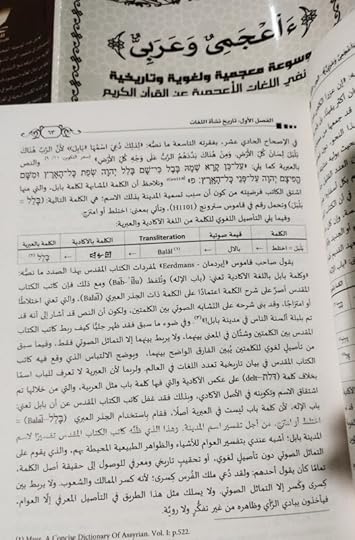 ءَأَعْجَمِيٌّ وَعَرَبِيٌّ
موسوعة معجمية ولغوية وتاريخية
تنفي اللغات الأعجمية عن القرآن الكريم
الفصل الأول: تاريخ نشأة اللغات
٦٣
في الإصحاح الحادي عشر، بفقرته التاسعة ما نصُّه: «لِذلِكَ دُعِيَ اسْمُهَا «بَابِلَ» لأَنَّ الرَّبَّ هُنَاكَ
بَلْبَلَ لِسَانَ كُلِّ الأَرْضِ. وَمِنْ هُنَاكَ بَدَّدَهُمُ الرَّبُّ عَلَى وَجْهِ كُلِّ الأَرْضِ» والنص
العبري يلي: עַל־כֵּן קָרָא שְׁמָהּ בָּבֶל כִּי־שָׁם בָּלַל יְהוָה שְׂפַת כָּל־הָאָרֶץ וּמִשָּׁם
הֱפִיצָם יְהוָה עַל־פְּנֵי כָּל־הָאָרֶץ: ونلاحظ أن الكلمة المشابهة لكلمة بابل، والتي منها
اشتق الكاتب فرضيته من كون أن سبب تسمية المدينة بذلك الاسم؛ هي الكلمة التالية: (בָּלַל =
بَلبَل) وتحمل رقم في قاموس سترونج (H1101)، وتأتي بمعنى: اختلط أو امتزج.
وفيما يلي التأصيل اللغوي للكلمة من اللغة الأكادية والعبرية:
الكلمة
قيمة صوتية
Transliteration
الكلمة بالأكادية
الكلمة بالعبرية
بَلبَل = اختلط
←
بالال
←
Balāl (١)
←
←
בָּלַל (٢)
يقول صاحب قاموس «إيردمان - Eerdmans» لمفردات الكتاب المقدس بهذا الصدد ما نصه:
«وكلمة بابل باللغة الأكادية تعني: (باب الإله) وتُلفظ (Bab- ilu) ومع ذلك فإن كاتب الكتاب
المقدس أصرَّ على شرح الكلمة اعتمادًا على الكلمة ذات الجذر العبري (Balal)، والتي تعني اختلاطًا
أو امتزاجًا. وقد بنى شرحه على التشابه الصوتي بين الكلمتين، ولكون أن النص قد أشار إلى أنه قد
تم بلبلة ألسنة الناس في مدينة بابل»(٣). وفي ضوء ما سبق فقد ظهر جليًّا كيف ربط كاتب الكتاب
المقدس بين الكلمتين وشتَّان في المعنى بينهما، ولا يربط بينهما إلا التماثل الصوتي فقط، وفيما سبق
من تأصيل لغوي للكلمتين يُبين الفارق الواضح بينهما. ويوضح الالتباس الذي وقع فيه كاتب
الكتاب المقدس في بيان تاريخية تعدد اللغات في العالم. ولربما لأن العبرية لا تعرف للباب اسمًا
بخلاف كلمة (דלת - delt) على عكس الأكادية والتي فيها كلمة باب مثل العربية، والتي من خلالها تم
اشتقاق الاسم وتكوينه في الأصل الأكادي، وبذلك فقد غفل كاتب الكتاب المقدس عن أن بابل تعني:
باب الإله، لأن كلمة باب ليست في العبرية أصلًا، فقام باستخدام الجذر العبري (בָּלַל - Balal =
اختلط أو امتزج)، من أجل تفسير اسم المدينة. وهذا الذي ظنَّه كاتب الكتاب المقدس تفسيرًا لاسم
المدينة بابل؛ أشبه عندي بتفسير العوام للأشياء والظواهر الطبيعية المحيطة بهم، والذي يقوم على
التماثل الصوتي دون تأصيل لغوي، أو تحقيق تاريخي ومعرفي للوصول إلى حقيقة أصل الكلمة،
تمامًا كأن يقول أحدهم: ولقد دُعي ملك الفُرس كِسرى؛ لأنه كسر الممالك والشعوب. ولا يربط بين
كِسرى وكَسر إلا التماثل الصوتي. ولا يسلك مثل هذا الطريق في التأصيل المعرفي إلَّا العوام،
فيأخذون ببادي الرَّأي وظاهره من غير تفكُّرٍ ولا رويَّة.
(١) Muss, A Concise Dictionary Of Assyrian. Vol. I: p.522.